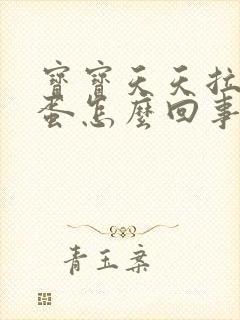 寶寶天天拉
蛋怎麼回事
青玉案